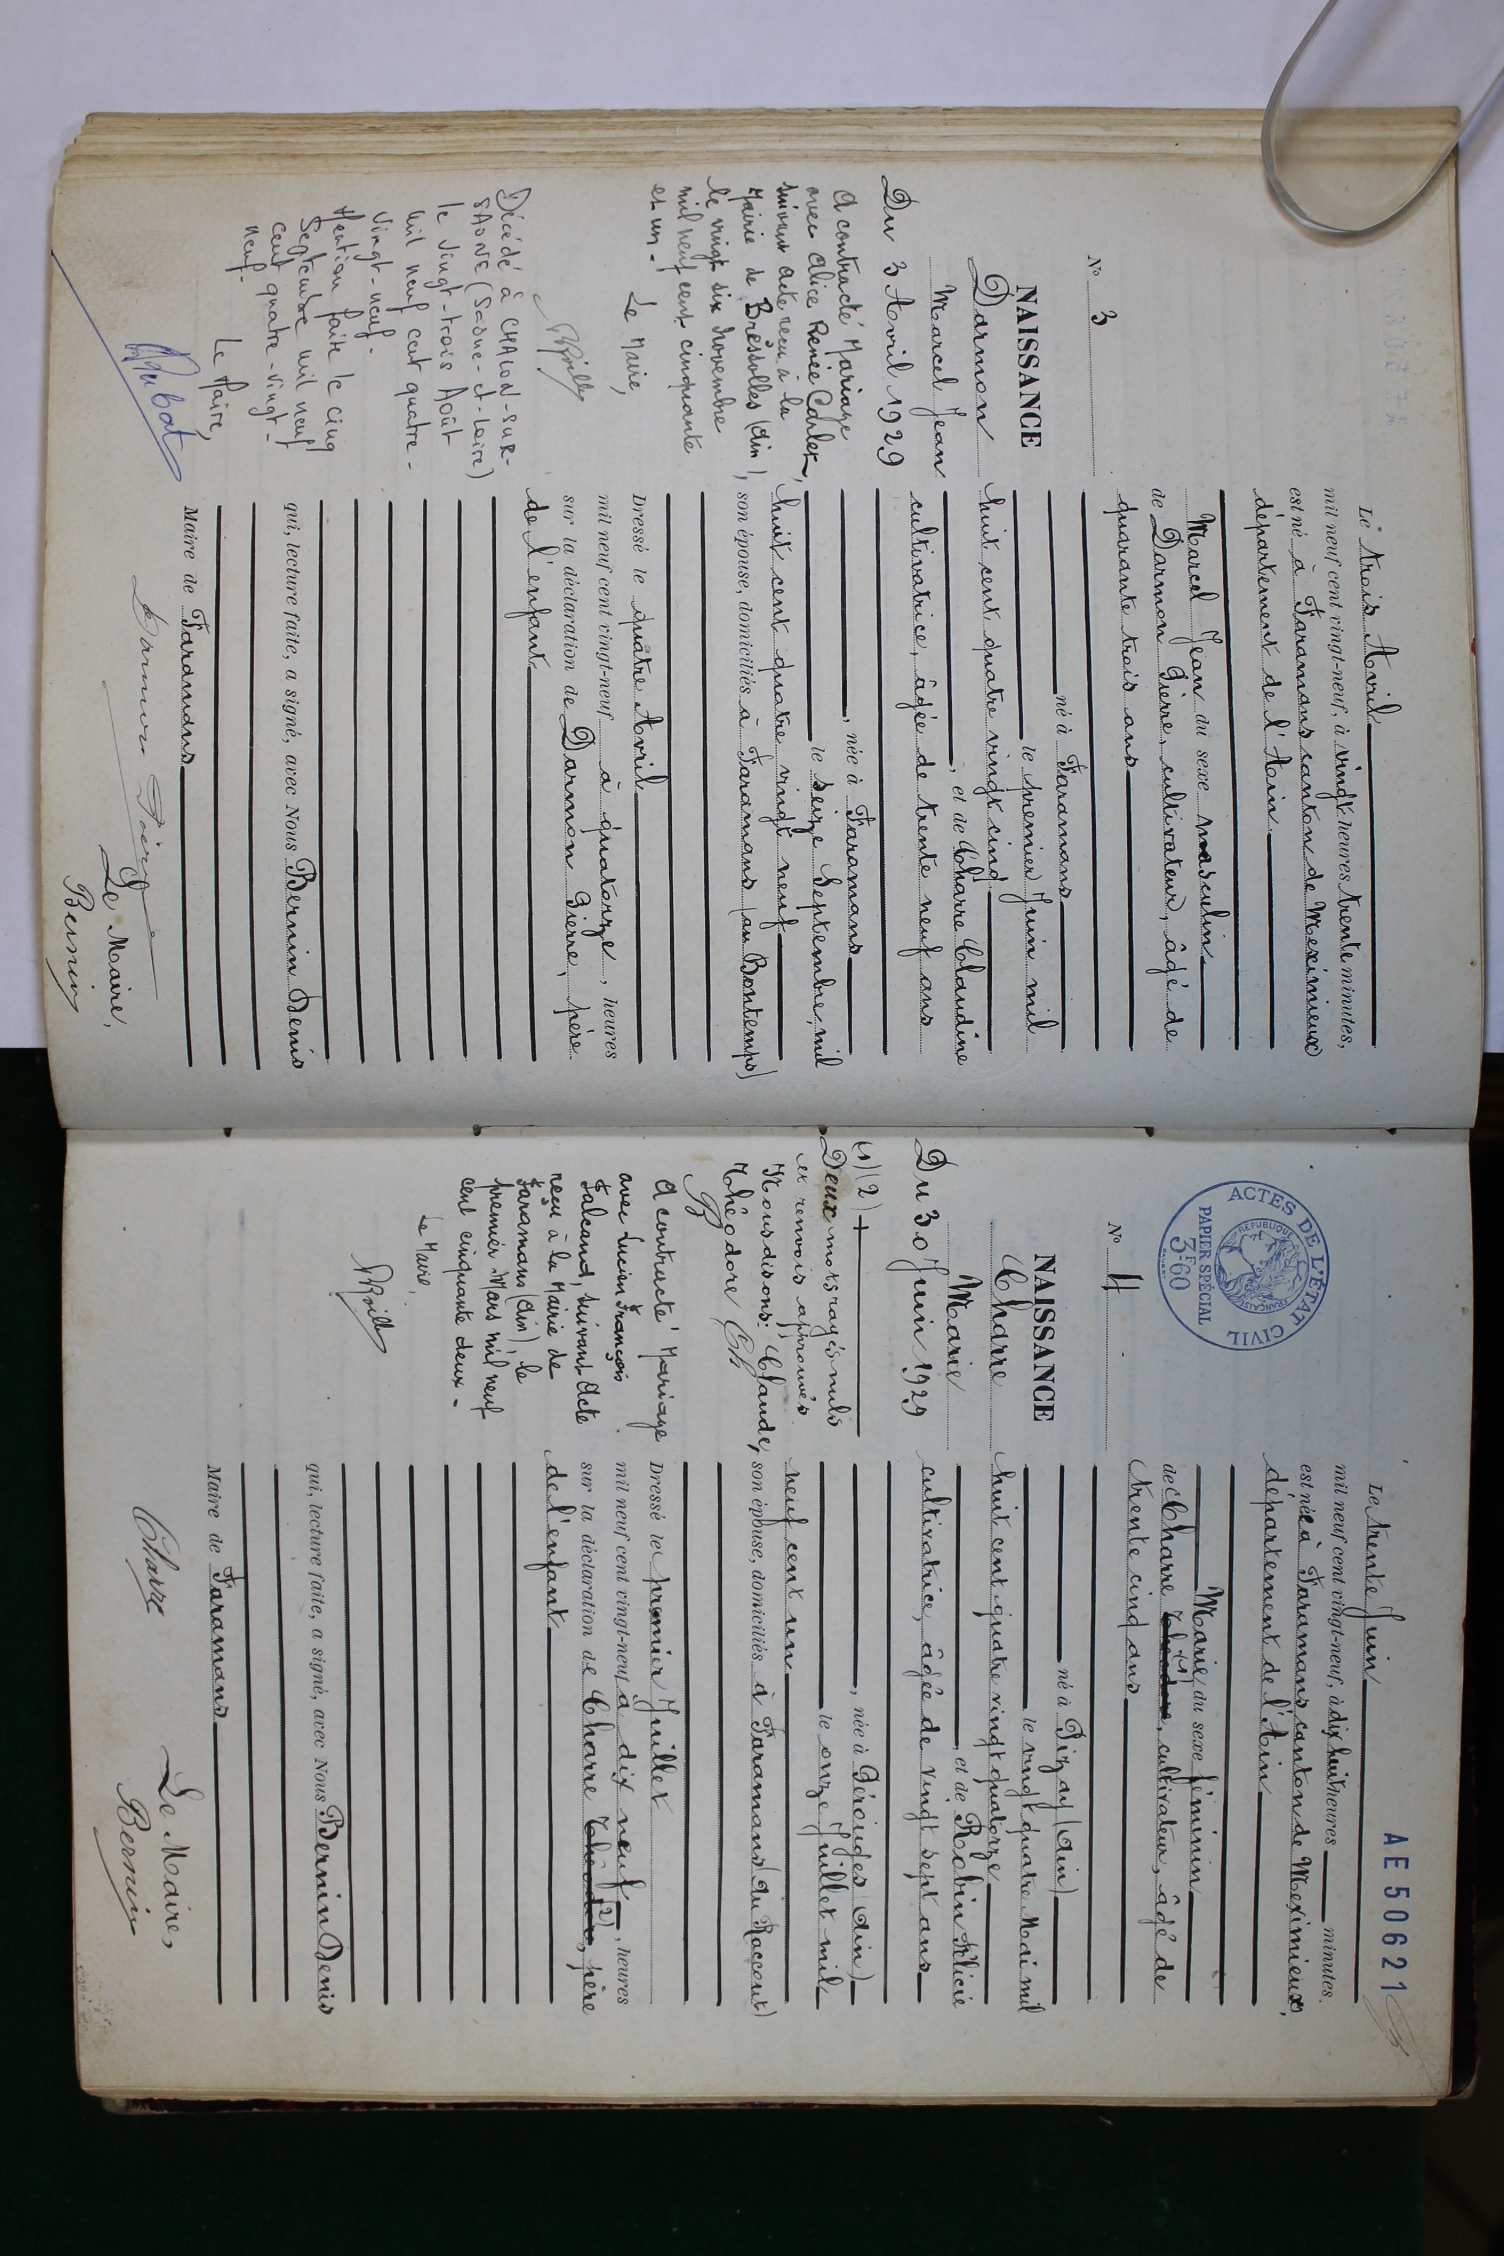 N° 3
NAISSANCE
Darmon
Marcel Jean
Du 3 Avril 1929
A contracté Mariage
avec Alice Renée
suivant acte reçu à la
Mairie de Bressolles (Ain)
le vingt six Novembre
mil neuf cent cinquante
et un -
Le Maire,
Décédé à CHALON-SUR-
SAONE (Saône-et-Loire)
le vingt-trois Août
mil neuf cent quatre-
vingt-neuf.
Mention faite le cinq
Septembre mil neuf
cent quatre-vingt-
neuf.
Le Maire,
Le trois Avril
mil neuf cent vingt-neuf, à vingt heures trente minutes,
est né à Faramans canton de Meximieux
département de l'Ain
Marcel Jean du sexe masculin
de Darmon Pierre, cultivateur, âgé de
quarante trois ans
né à Faramans
le premier Juin mil
huit cent quatre vingt cinq
, et de Charre Claudine
cultivatrice, âgée de trente neuf ans
, née à Faramans
le seize Septembre mil
huit cent quatre vingt neuf
son épouse, domiciliés à Faramans (au Bontemps)
Dressé le quatre Avril
mil neuf cent vingt-neuf à quatorze, heures
sur la déclaration de Darmon Pierre, père
de l'enfant
qui, lecture faite, a signé, avec Nous Bernin Denis
Maire de Faramans
Darmon Pierre
Le Maire,
Bernin
ACTES DE L'ÉTAT CIVIL
RÉPUBLIQUE FRANÇAISE
PAPIER SPÉCIAL
3F60
N° 4
NAISSANCE
Charre
Marie
Du 30 Juin 1929
(1) (2) +
Deux mots rayés nuls
et renvois approuvés
Nous disons: "Claude,
Théodore
A contracté Mariage
avec Lucien François
Falcand, suivant Acte
reçu à la Mairie de
Faramans (Ain) le
premier Mars mil neuf
cent cinquante deux -
Le Maire,
AE50621
Le trente Juin
mil neuf cent vingt-neuf, à dix huit heures minutes,
est née à Faramans, canton de Meximieux,
département de l'Ain
Marie, du sexe féminin
de Charre Théodore (1), cultivateur, âgé de
trente cinq ans
né à Pizay (Ain)
le vingt quatre Mai mil
huit cent quatre vingt quatorze
, et de Robin Félicie
cultivatrice, âgée de vingt sept ans
, née à Pérouges (Ain)
le onze Juillet mil
neuf cent un
son épouse, domiciliés à Faramans (au Raccourt)
Dressé le premier Juillet
mil neuf cent vingt-neuf à dix neuf, heures
sur la déclaration de Charre Théodore (2), père
de l'enfant
qui, lecture faite, a signé, avec Nous Bernin Denis
Maire de Faramans
Charre
Le Maire,
Bernin